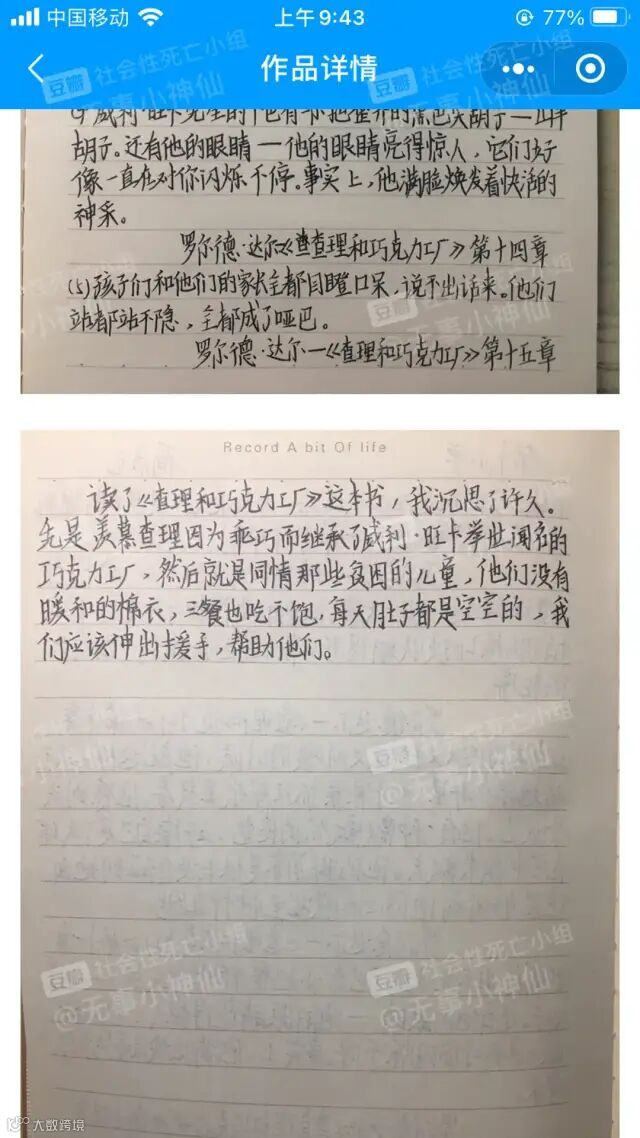 中国移动 上午 9:43 77%
作品详情
豆瓣 社会性死亡小组
@无事小神仙
胡子。还有他的眼睛一他的眼睛亮得惊人,它们好
像一直在对你闪烁不停。事实上,他满脸焕发着快活的
神采。
罗尔德·达尔《查理和巧克力工厂》第十四章
(5)孩子们和他们的家长全都目瞪口呆,说不出话来。他们
站都站不隐,全都成了哑巴。
罗尔德·达尔一《查理和巧克力工厂》第十五章
Record A bit Of life
读了《查理和巧克力工厂》这本书,我沉思了许久。
先是羡慕查理因为乖巧而继承了威利·旺卡举世闻名的
巧克力工厂,然后就是同情那些贫困的儿童,他们没有
暖和的棉衣,三餐也吃不饱,每天肚子都是空空的,我
们应该伸出援手,帮助他们。
豆瓣 社会性死亡小组
@无事小神仙
豆瓣 社会性死亡小组
@无事小神仙
大数跨境